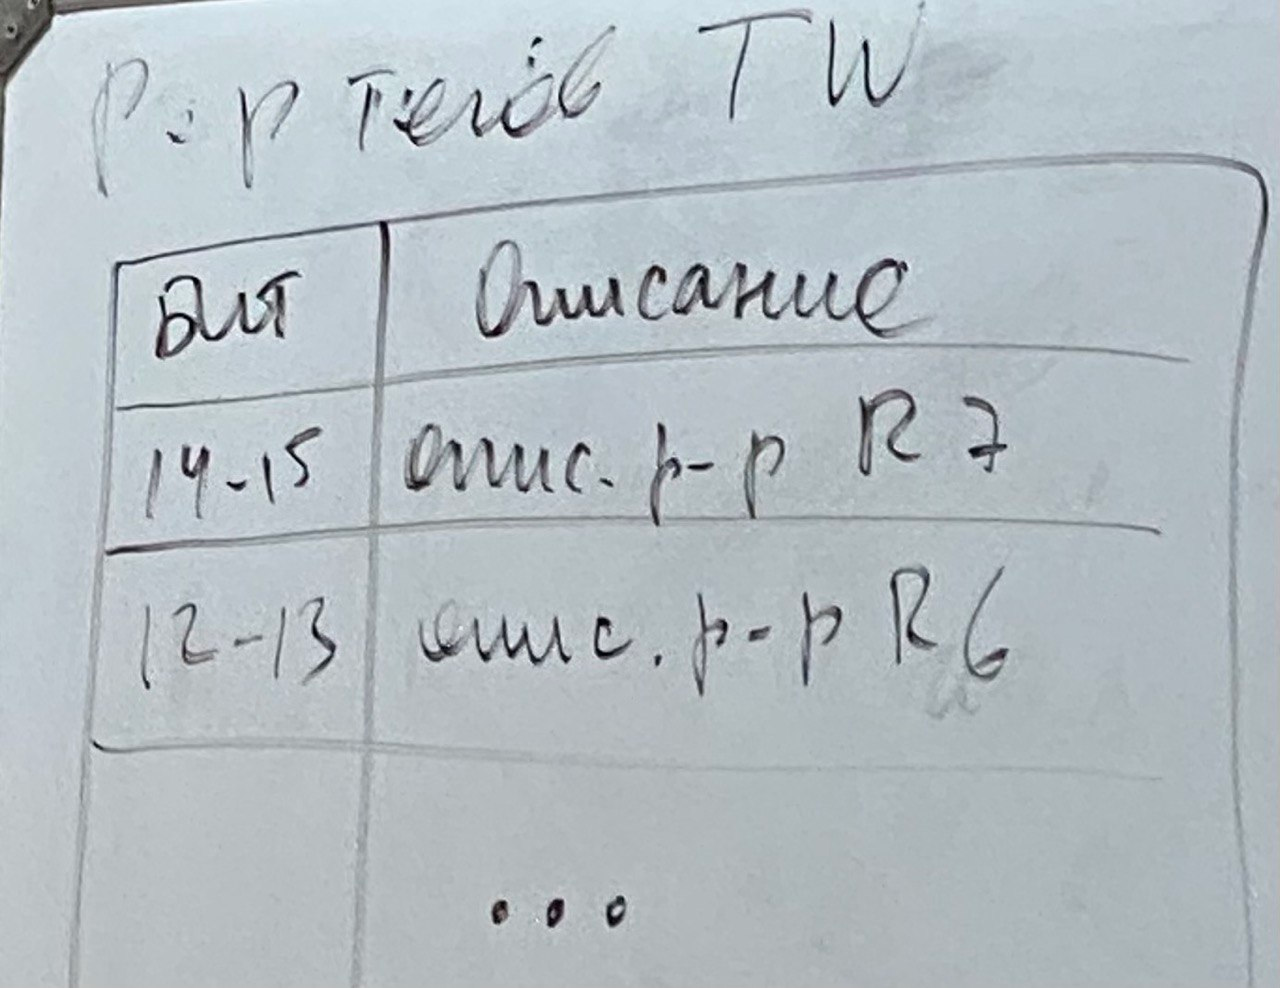 Р-р тегов TW
Бит Описание
14-15 опис. р-р R7
12-13 опис. р-р R6
...